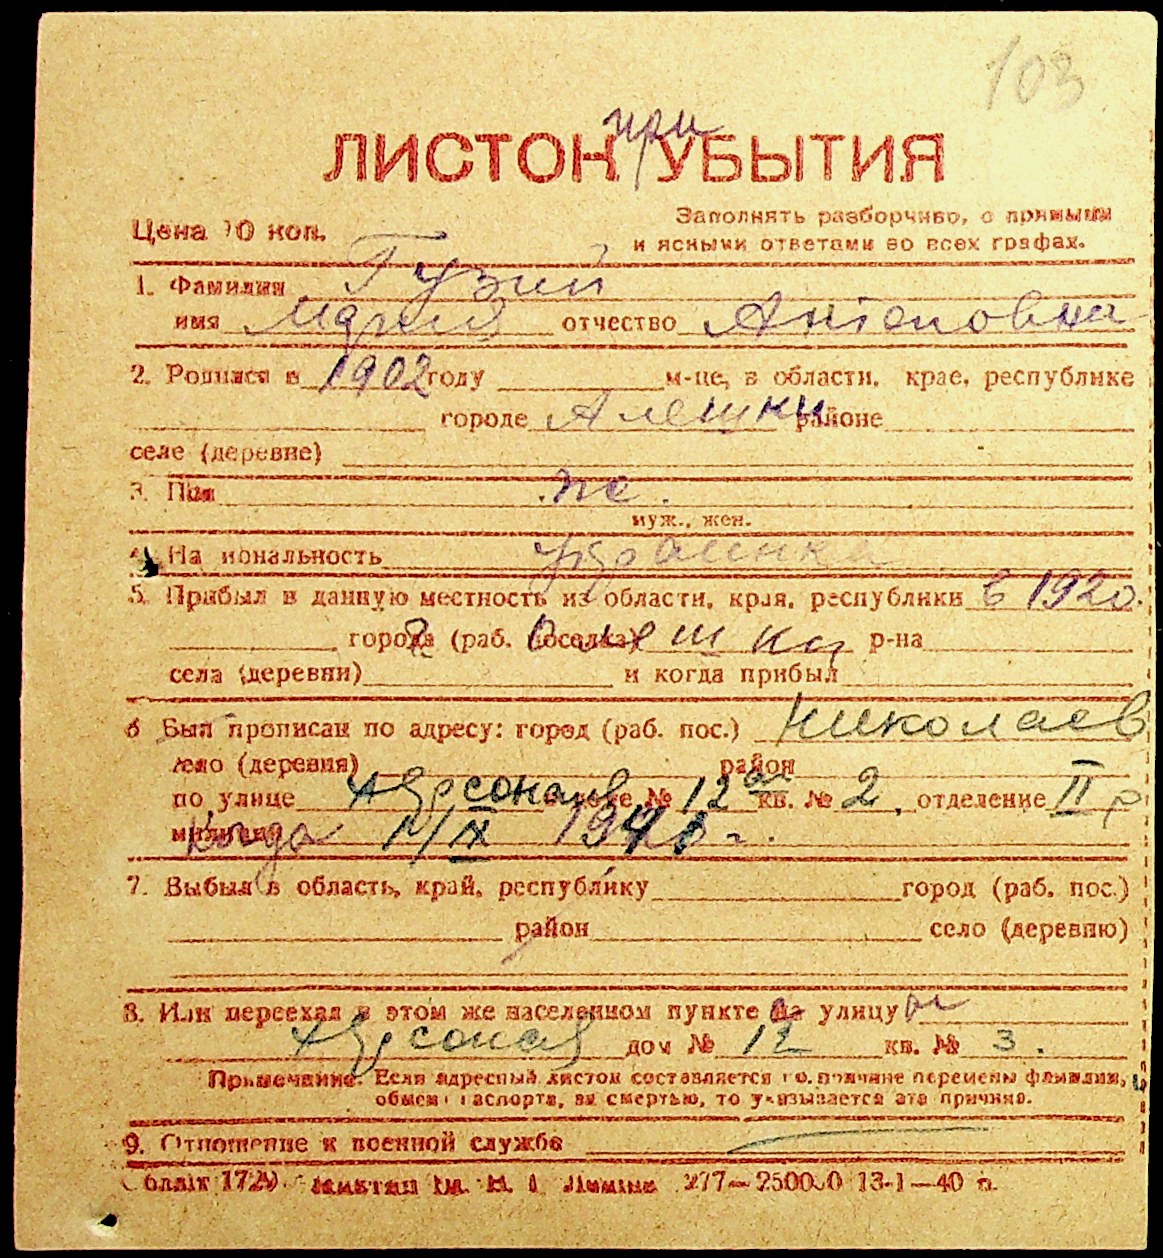 103
при
ЛИСТОК УБЫТИЯ
Цена 10 коп.
Заполнять разборчиво, с прямыми
и ясными ответами во всех графах.
1. Фамилия Гузий
имя Мария отчество Антоновна
2. Родился в 1902 году м-це, в области, крае, республике
городе Алешки районе
селе (деревне)
3. Пол ж.
муж., жен.
4. Национальность украинка
5. Прибыл в данную местность из области, края, республики в 1920.
города (раб. поселка) Олешки р-на
села (деревни) и когда прибыл
6 Был прописан по адресу: город (раб. пос.) Николаев
село (деревня) район
по улице Херсонская № 12а кв. № 2, отделение II р
милиции Когда IX 194 г.
7. Выбыл в область, край, республику город (раб. пос.)
район село (деревню)
8. Или переехал в этом же населенном пункте на улицу
Херсонская дом № 12 кв. № 3.
Примечание: Если адресный листок составляется по причине перемены фамилии,
обмена паспорта, за смертью, то указывается эта причина.
9. Отношение к военной службе
Облліт 1729. им. В. І. Леніна 277—250000 13-1—40 р.